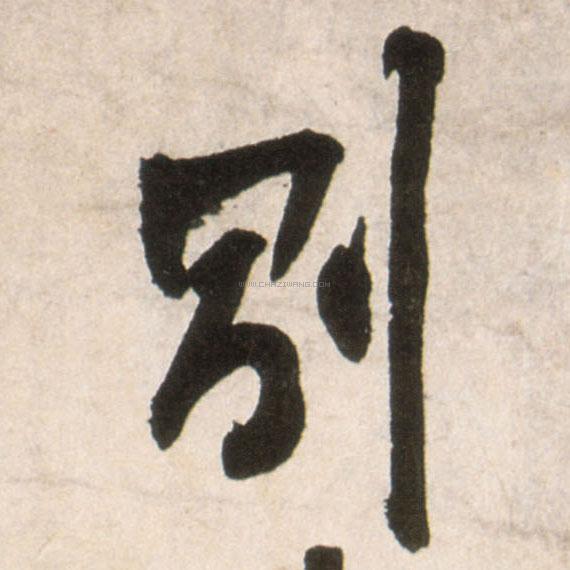 別
WWW.CHAZIWANG.COM